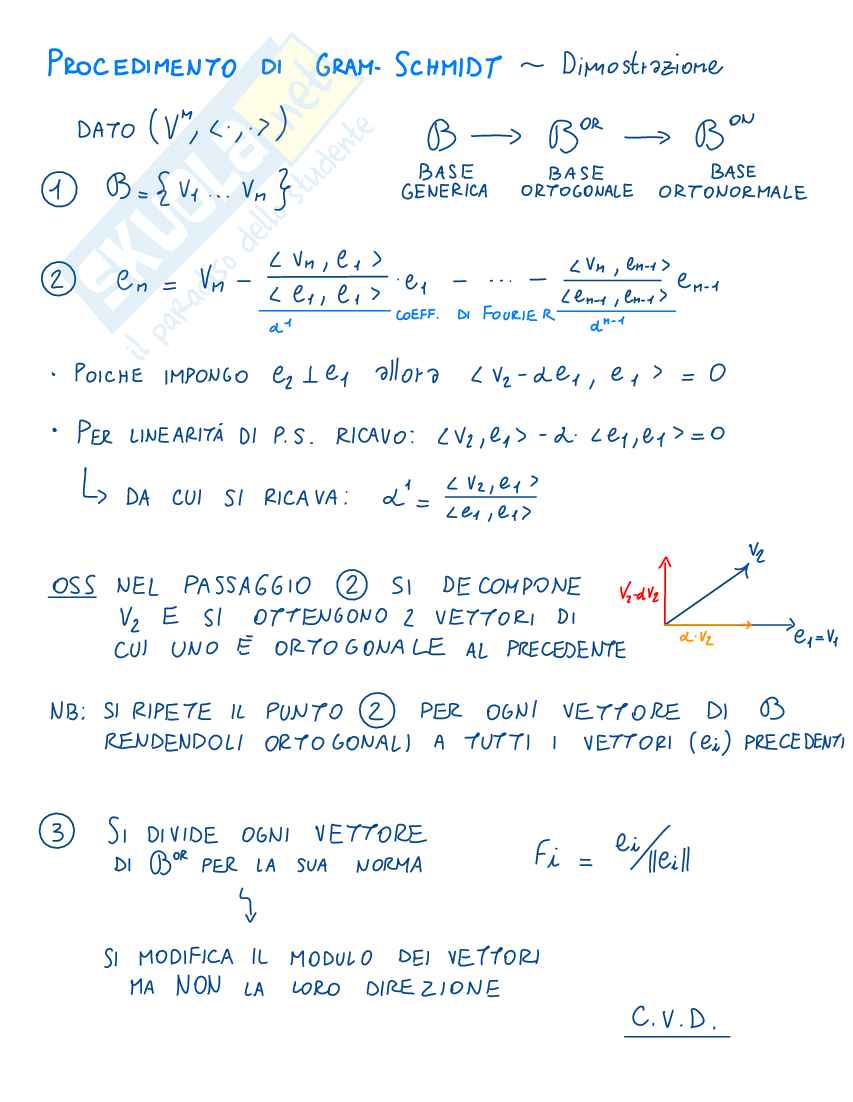 PROCEDIMENTO DI GRAM-SCHMIDT ~ Dimostrazione
DATO (Vⁿ, <·,·>)
B → B^OR → B^ON
BASE GENERICA
BASE ORTOGONALE
BASE ORTONORMALE
① B = {V₁ ... Vₙ}
② eₙ = Vₙ - <Vₙ, e₁> / <e₁, e₁> · e₁ - ... - <Vₙ, eₙ₋₁> / <eₙ₋₁, eₙ₋₁> eₙ₋₁
α¹ COEFF. DI FOURIER αⁿ⁻¹
· POICHE IMPONGO e₂ ⊥ e₁ allora <V₂ - αe₁, e₁> = 0
· PER LINEARITÁ DI P.S. RICAVO: <V₂, e₁> - α · <e₁, e₁> = 0
↳ DA CUI SI RICAVA: α¹ = <V₂, e₁> / <e₁, e₁>
OSS NEL PASSAGGIO ② SI DECOMPONE
V₂ E SI OTTENGONO 2 VETTORI DI
CUI UNO È ORTOGONALE AL PRECEDENTE
V₂
V₂-αV₂
α·V₂
e₁=V₁
NB: SI RIPETE IL PUNTO ② PER OGNI VETTORE DI B
RENDENDOLI ORTOGONALI A TUTTI I VETTORI (eᵢ) PRECEDENTI
③ SI DIVIDE OGNI VETTORE
DI B^OR PER LA SUA NORMA
Fᵢ = eᵢ/||eᵢ||
SI MODIFICA IL MODULO DEI VETTORI
MA NON LA LORO DIREZIONE
C.V.D.
SKUOLA.net
il paradiso dello studente